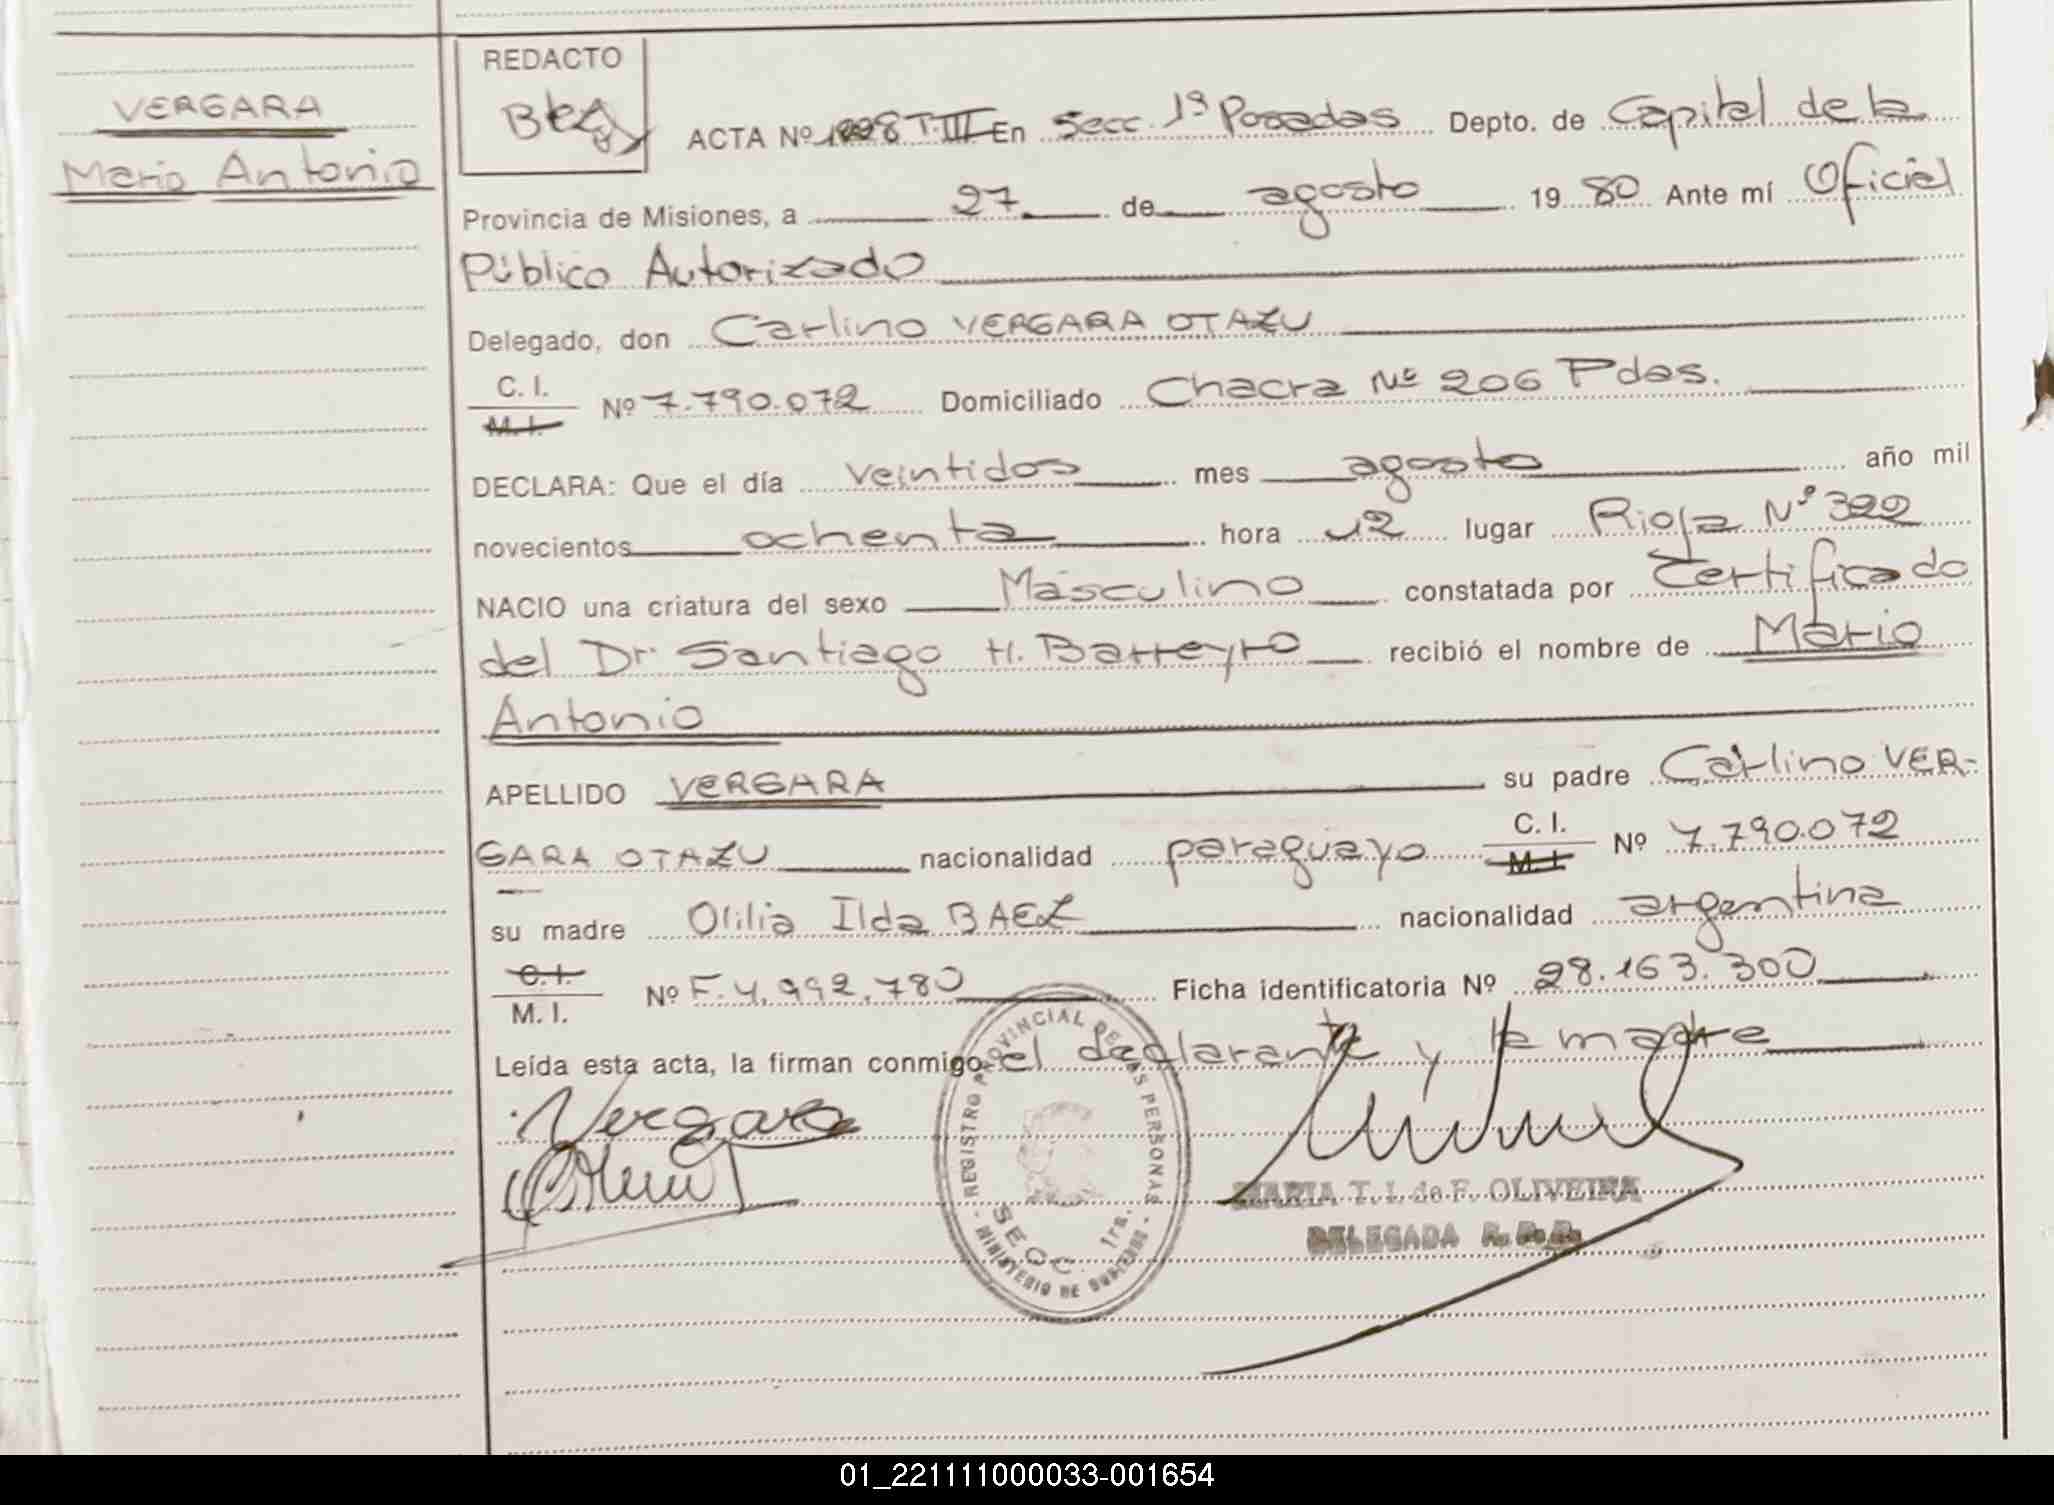 VERGARA
Mario Antonio
REDACTO
ACTA Nº 1228 T. III En Secc. 1ª Posadas Depto. de Capital de la
Provincia de Misiones, a 27 de agosto 1980 Ante mí Oficial
Público Autorizado
Delegado, don Carlino VERGARA OTAZU
C. I.
M. I. Nº 7.790.072 Domiciliado Chacra Nº 206 Pdas.
DECLARA: Que el día veintidos mes agosto año mil
novecientos ochenta hora 12 lugar Rioja Nº 322
NACIO una criatura del sexo Masculino constatada por Certificado
del Dr. Santiago H. Barreyro recibió el nombre de Mario
Antonio
APELLIDO VERGARA su padre Carlino VER-
GARA OTAZU nacionalidad paraguayo C. I. M. I. Nº 7.790.072
su madre Olilia Ilda BAEZ nacionalidad argentina
C. I.
M. I. Nº F. 4.992.780 Ficha identificatoria Nº 28.163.300
Leída esta acta, la firman conmigo el declarante y la madre
Vergara
REGISTRO PROVINCIAL DE LAS PERSONAS
SECC. 1ra.
- MINISTERIO DE GOBIERNO -
MARIA T. I. de F. OLIVEIRA
DELEGADA R. P. P.
01_221111000033-001654